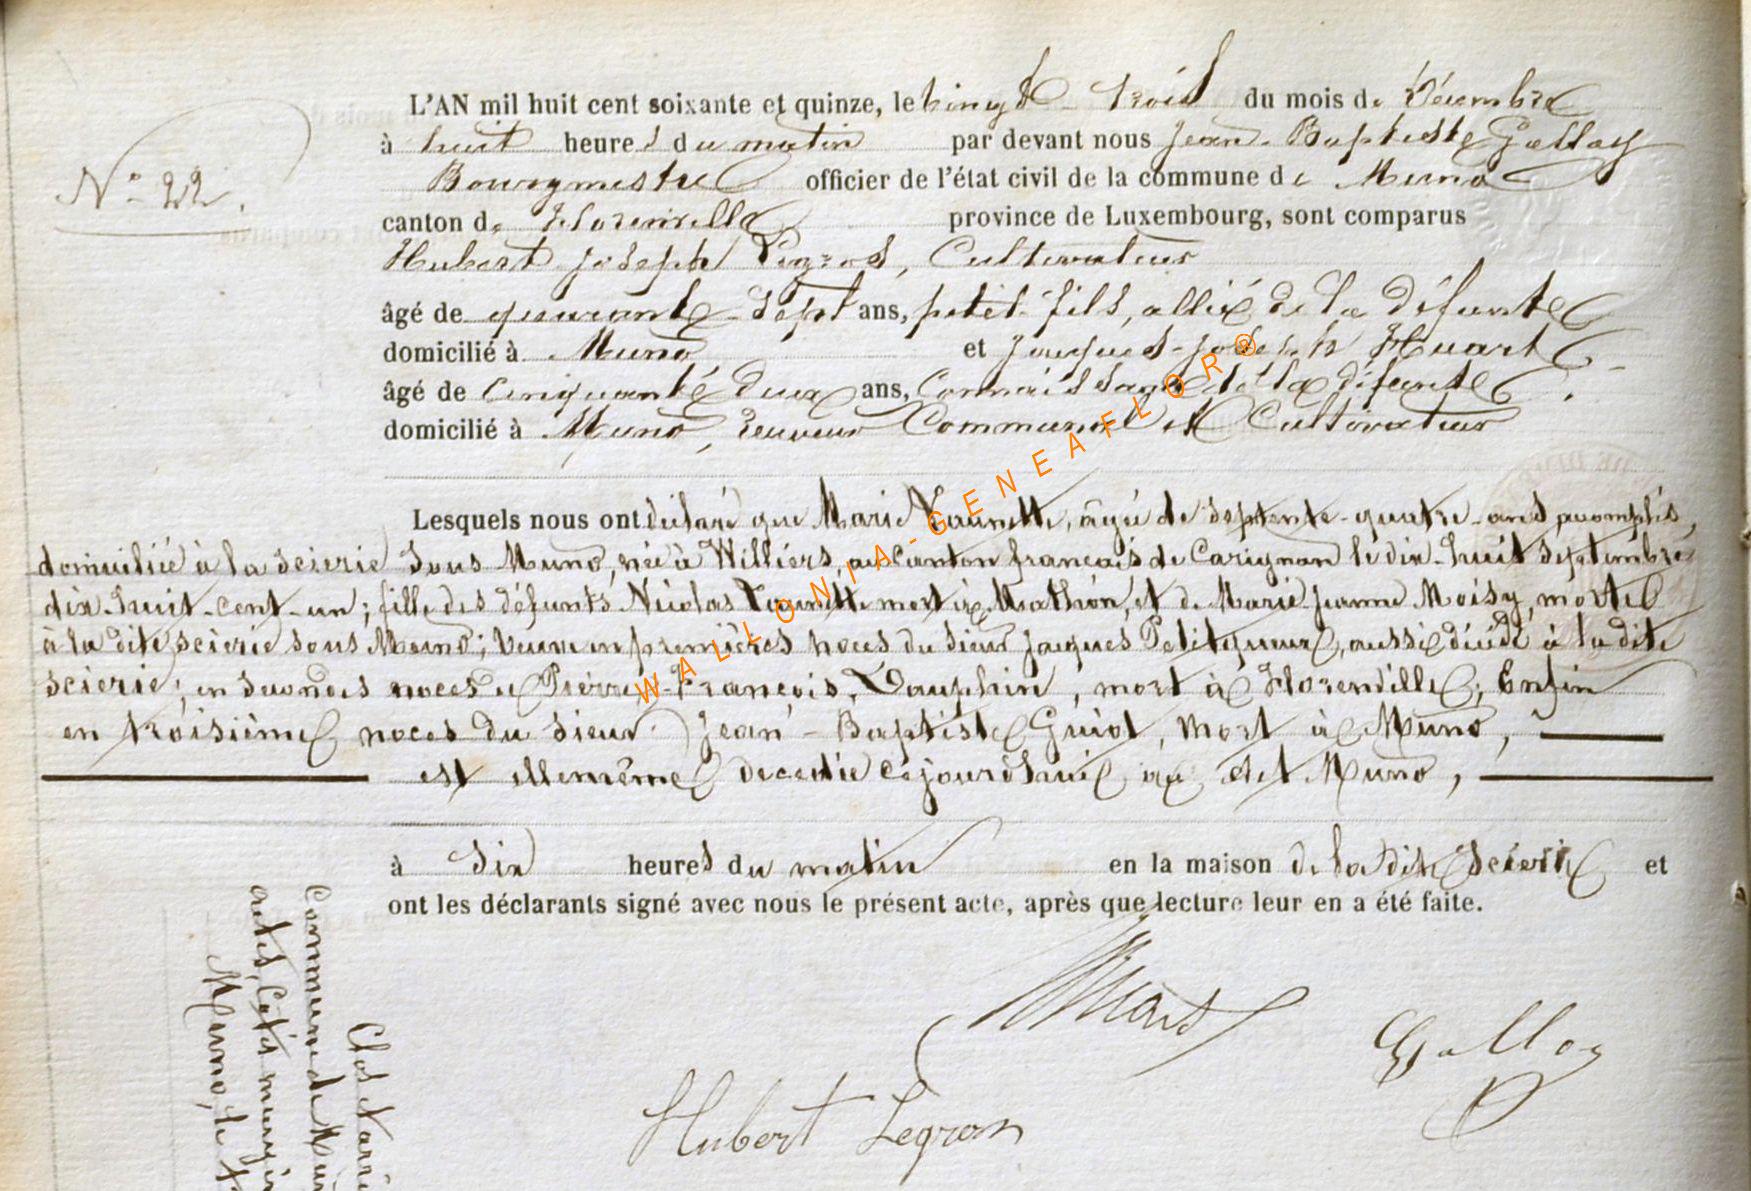 N° 22.
L'AN mil huit cent soixante et quinze, le vingt-trois du mois de Décembre
à huit heures du matin par devant nous Jean-Baptiste Galloy
Bourgmestre officier de l'état civil de la commune de Muno
canton de Florenville province de Luxembourg, sont comparus
Hubert Joseph Legros, Cultivateur
âgé de quarante-sept ans, petit-fils, allié de la défunte
domicilié à Muno et Jacques-Joseph Huart
âgé de cinquante deux ans, Connaissance de la défunte
domicilié à Muno, receveur Communal et Cultivateur
Lesquels nous ont déclaré que Marie Launette, âgée de septente-quatre ans accomplis,
domiciliée à la scierie sous Muno, née à Williers, au Canton français de Carignan le dix-huit septembre
dix-huit-cent-un; fille des défunts Nicolas Launette mort à Mathon, et de Marie Jeanne Moisy, morte
à la dite scierie sous Muno; veuve en premières noces du sieur Jacques Petitqueux, aussi décédé à la dite
scierie; en secondes noces de Pierre-François Dauphin, mort à Florenville; Enfin
en troisième noces du sieur Jean-Baptiste Guiot, mort à Muno,
est ellemême decedée cejourd'hui au dit Muno,
à six heures du matin en la maison de la dite scierie et
ont les déclarants signé avec nous le présent acte, après que lecture leur en a été faite.
Huart
Galloy
Hubert Legros
Clos et arrê
commune de Mun
actes, Cotés
Muno, le
WALLONIA-GENEAFLOR®